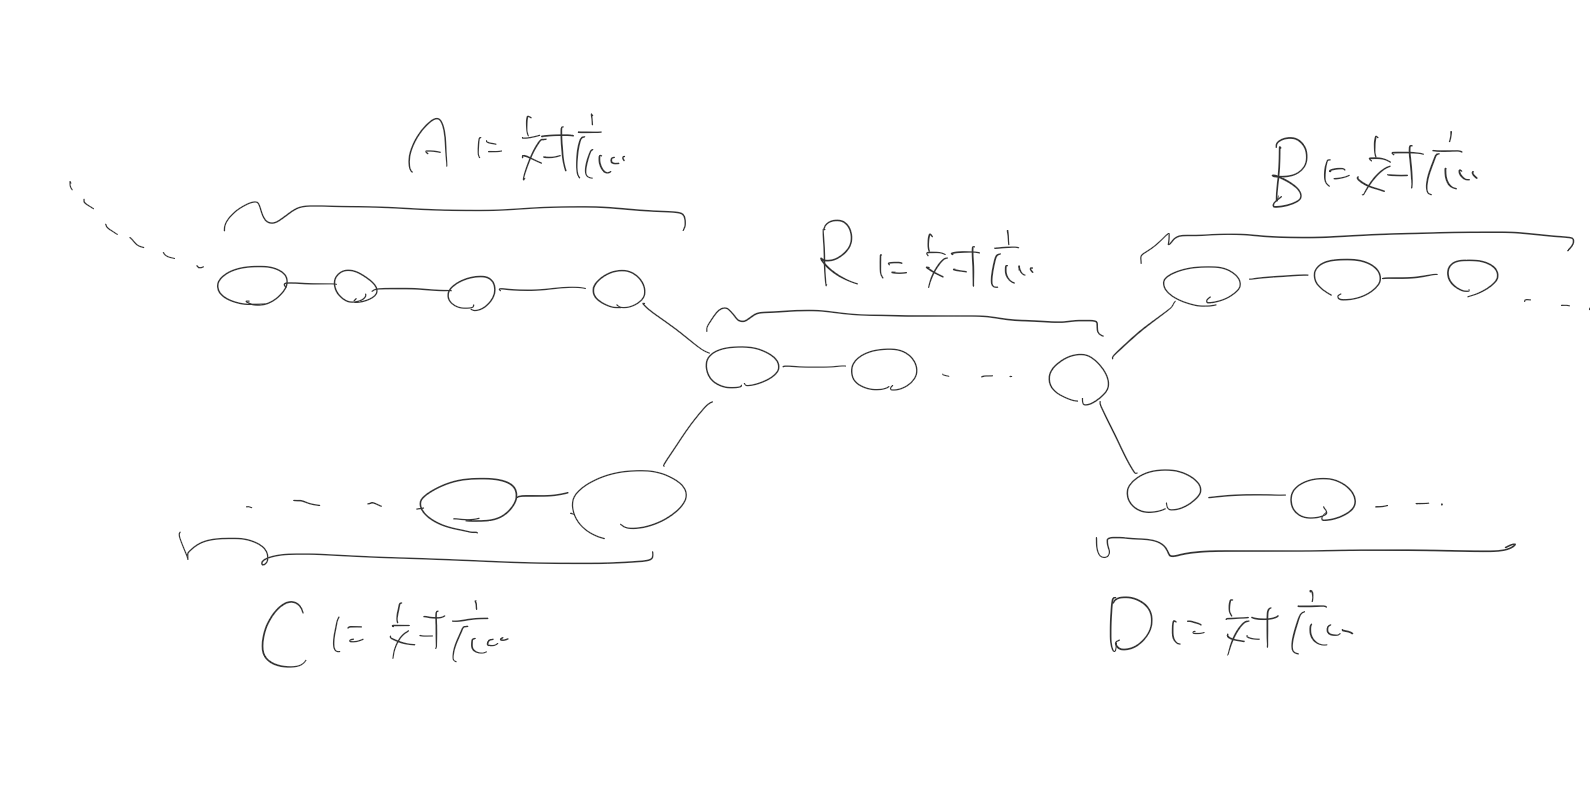 Aに対応
Bに対応
Rに対応
Cに対応
Dに対応